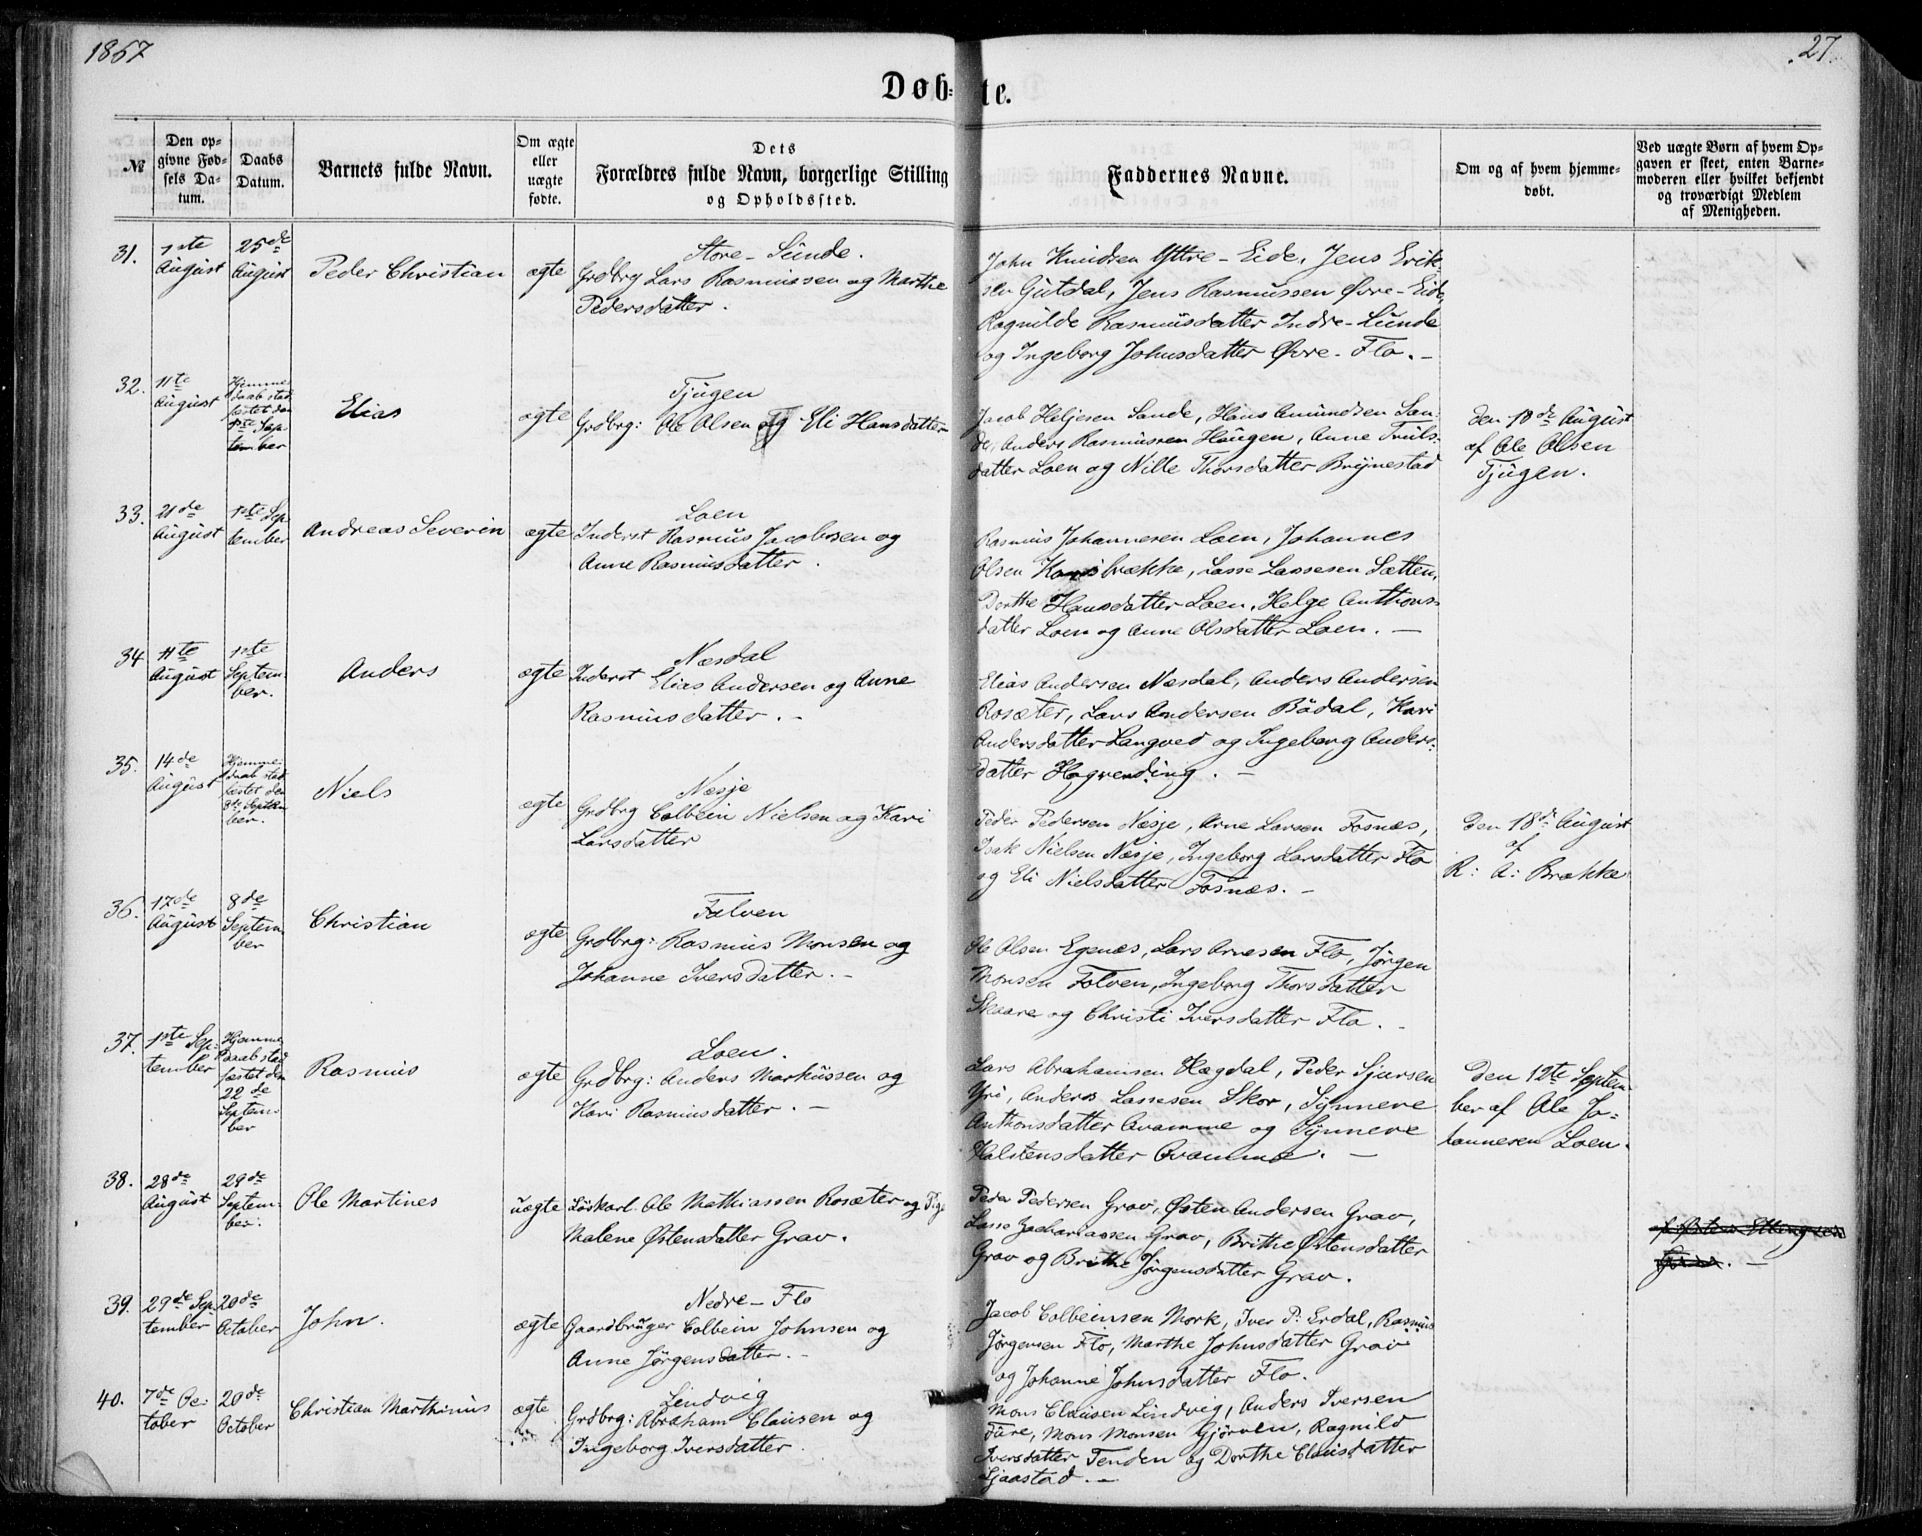 1867
27.
Døb-te.
№
Den op-
givne Fød-
sels Da-
tum.
Daabs
Datum.
Barnets fulde Navn.
Om ægte
eller
uægte
fødte.
Dets
Forældres fulde Navn, borgerlige Stilling
og Opholdssted.
Faddernes Navne.
Om og af hvem hjemme-
døbt.
Ved uægte Børn af hvem Op-
gaven er skeet, enten Barne-
moderen eller hvilket bekjendt
og troværdigt Medlem
af Menigheden.
31.
1ste
August
25de
August
Peder Christian
ægte
Store-Sunde.
Grdbrg Lars Rasmussen og Marthe
Pedersdatter.
John Knudsen Yttre-Eide, Jens Erik-
sen Gutdal, Jens Rasmussen Øvre-Eide,
Ragnilde Rasmusdatter Indre-Sunde
og Ingeborg Johnsdatter Øvre-Flo. -
32.
11te
August
Hjemme
daab stad
fæstet den
1ste Sep
tember
Elias
ægte
Tjugen
Grdbrg: Ole Olsen og Eli Hansdatter
Jacob Heljesen Sande, Hans Amundsen San-
de, Anders Rasmussen Haugen, Anne Truls-
datter Loen og Nille Thorsdatter Brynestad
den 18de August
af Ole Olsen
Tjugen.
33.
21de
August
1ste Sep
tember
Andreas Severin
ægte
Loen
Inderst Rasmus Jacobsen og
Anne Rasmusdatter.
Rasmus Johannesen Loen, Johannes
Olsen brække, Lasse Lassesen Sætten,
Dorthe Hansdatter Loen, Helge Anthons-
datter Loen og Anne Olsdatter Loen. -
34
11te
August
1ste
Septem-
ber.
Anders
ægte
Næsdal
Inderst Elias Andersen og Anne
Rasmusdatter. -
Elias Andersen Næsdal, Anders Andersen
Rosæter, Lars Andersen Bødal, Kari
Andersdatter Langved og Ingeborg Anders-
datter Hogrending. -
35.
14de
August
Hjemme-
daab stad
fæstet den
8de Septem
ber.
Niels
ægte
Næsje
Grdbrg Colbein Nielsen og Kari
Larsdatter
Peder Pedersen Næsje, Arne Larsen Fosnæs,
Isak Nielsen Næsje, Ingeborg Larsdatter Flo
og Eli Nielsdatter Fosnæs. -
den 18de August
af
R: A: Brække
36.
17de
August
8de
Septem
ber
Christian
ægte
Folven
Grdbrg: Rasmus Monsen og
Johanne Iversdatter. -
Ole Olsen Egenæs, Lars Arnesen Flo, Jørgen
Monsen Folven, Ingeborg Thorsdatter
Skaare og Christi Iversdatter Flo. -
37.
1ste Sep-
tember
Hjemme
daab stad
fæstet den
22de
Septem-
ber
Rasmus
ægte
Loen.
Grdbrg: Anders Markussen og
Kari Rasmusdatter. -
Lars Abrahamsen Hægdal, Peder Sjursen
Yri, Anders Lassesen Skor, Synneve
Anthonsdatter Qvamme og Synneve
Halstensdatter Qvamme. -
Den 12te Septem
ber af Ole Jo-
hannesen Loen.
38.
28de
August
29de
Septem-
ber.
Ole Martines
uægte
Løskarl Ole Mathiassen Rosæter og Pige
Malene Østensdatter Grav.
Peder Pedersen Grav, Østen Andersen Grav,
Lasse Zachariassen Grav, Brithe Østensdatter
Grav og Brithe Jørgensdatter Grav.
39.
29de Sep-
tember
20de
October
John.
ægte
Nedre-Flo
Gaardbruger Colbein Johnsen og
Anne Jørgensdatter. -
Jacob Colbeinsen Mork, Iver P: Erdal, Rasmus
Jørgensen Flo, Marthe Johnsdatter Grav
og Johanne Johnsdatter Flo.
40.
7de Oc-
tober
20de
October
Christian Marthinus
ægte
Lindvig
Grdbrg: Abraham Clausen og
Ingeborg Iversdatter.
Mons Clausen Lindvig, Anders Iversen
Fure, Mons Monsen Gjørven, Ragnild
Iversdatter Tenden og Dorthe Clausdatter
Sjaastad. -